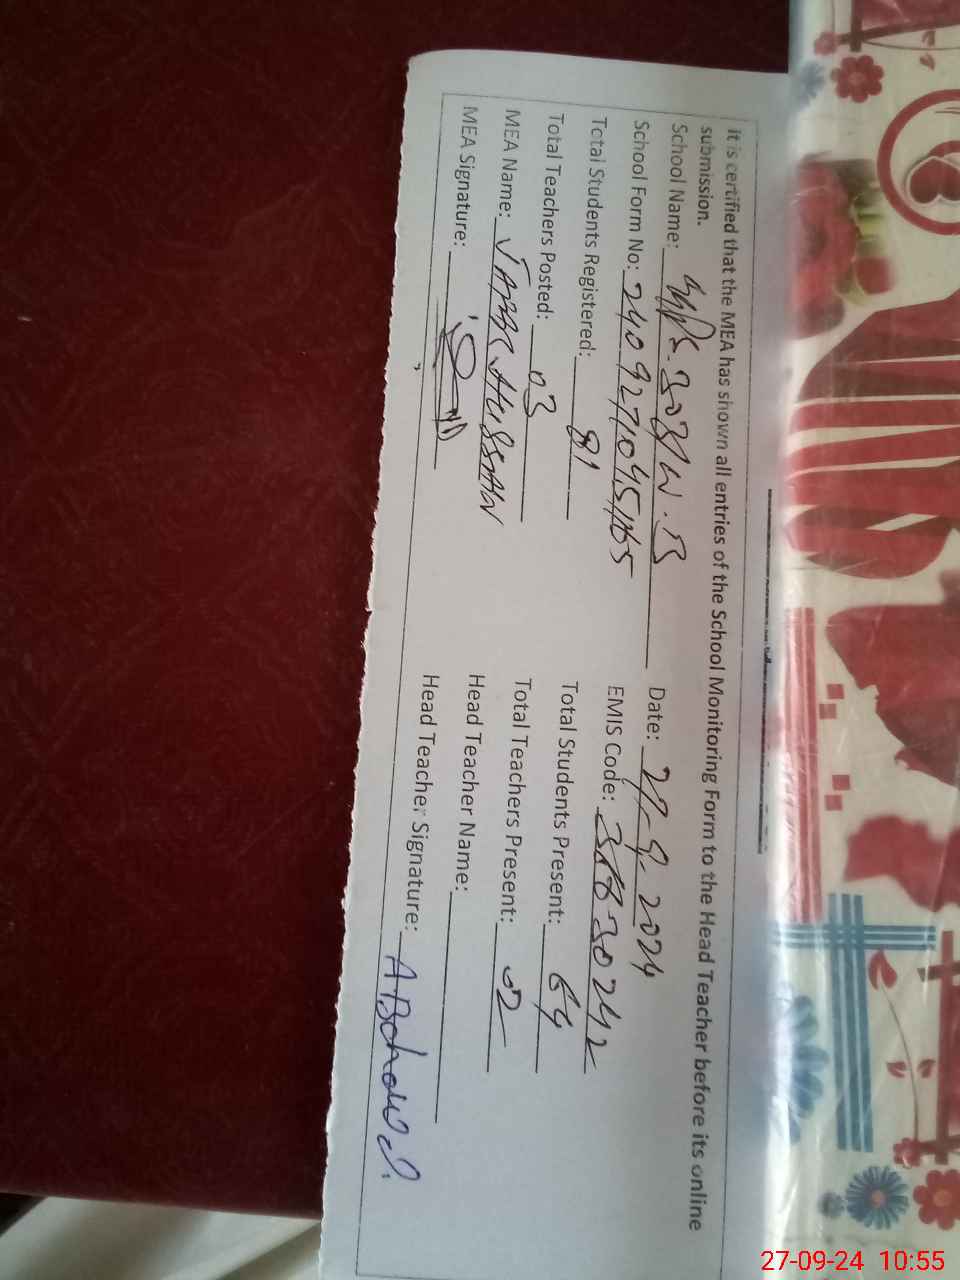 it is certified that the MEA has shown all entries of the School Monitoring Form to the Head Teacher before its online
submission.
School Name: 303/W.B Date: 27-9-2024
School Form No: EMIS Code:
Total Students Registered: 81 Total Students Present: 64
Total Teachers Posted: 03 Total Teachers Present: 02
MEA Name: HUSSAIN Head Teacher Name:
MEA Signature: Head Teacher Signature:
27-09-24 10:55